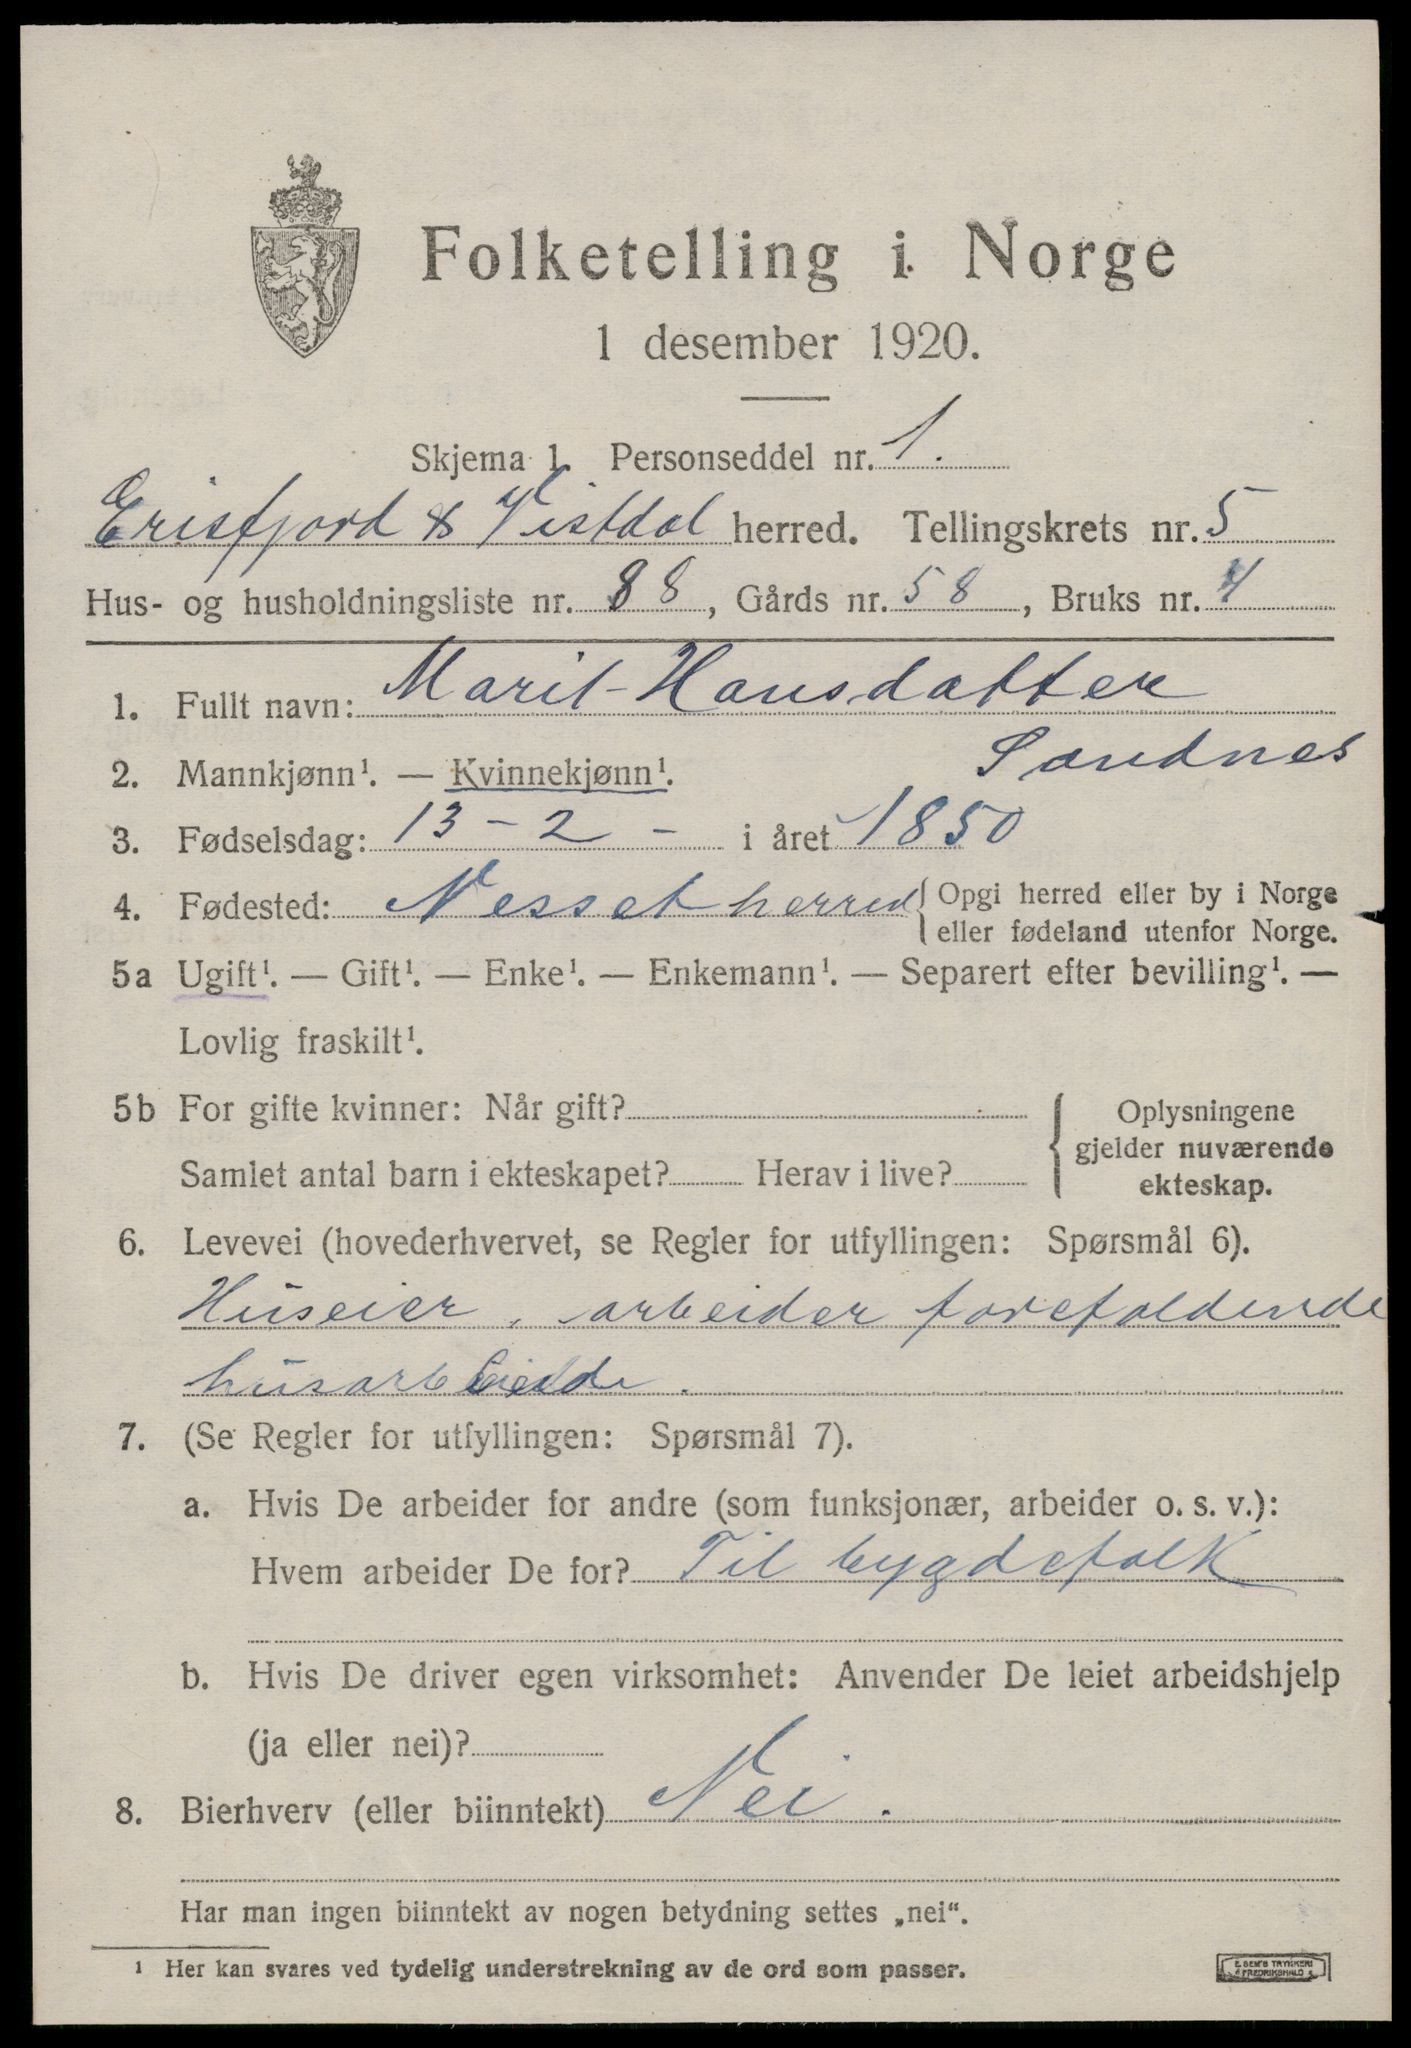 Folketelling i Norge
1 desember 1920.
Skjema 1. Personseddel nr. 1.
Erisfjord & Vistdal herred. Tellingskrets nr. 5
Hus- og husholdningsliste nr. 88, Gårds nr. 58, Bruks nr. 4
1. Fullt navn: Marit Hansdatter
Sandnes
2. Mannkjønn¹. — Kvinnekjønn¹.
3. Fødselsdag: 13 - 2 - i året 1850
4. Fødested: Nesset herred { Opgi herred eller by i Norge
eller fødeland utenfor Norge.
5a Ugift¹. — Gift¹. — Enke¹. — Enkemann¹. — Separert efter bevilling¹. —
Lovlig fraskilt¹.
5b For gifte kvinner: Når gift?
Samlet antal barn i ekteskapet? Herav i live?
{ Oplysningene
gjelder nuværende
ekteskap.
6. Levevei (hovederhvervet, se Regler for utfyllingen: Spørsmål 6).
Huseier, arbeider forefaldende
husarbeide.
7. (Se Regler for utfyllingen: Spørsmål 7).
a. Hvis De arbeider for andre (som funksjonær, arbeider o. s. v.):
Hvem arbeider De for? Til bygdefolk
b. Hvis De driver egen virksomhet: Anvender De leiet arbeidshjelp
(ja eller nei)?
8. Bierhverv (eller biinntekt) Nei.
Har man ingen biinntekt av nogen betydning settes „nei“.
¹ Her kan svares ved tydelig understrekning av de ord som passer.
E. SEM'S TRYKKERI
FREDRIKSHALD